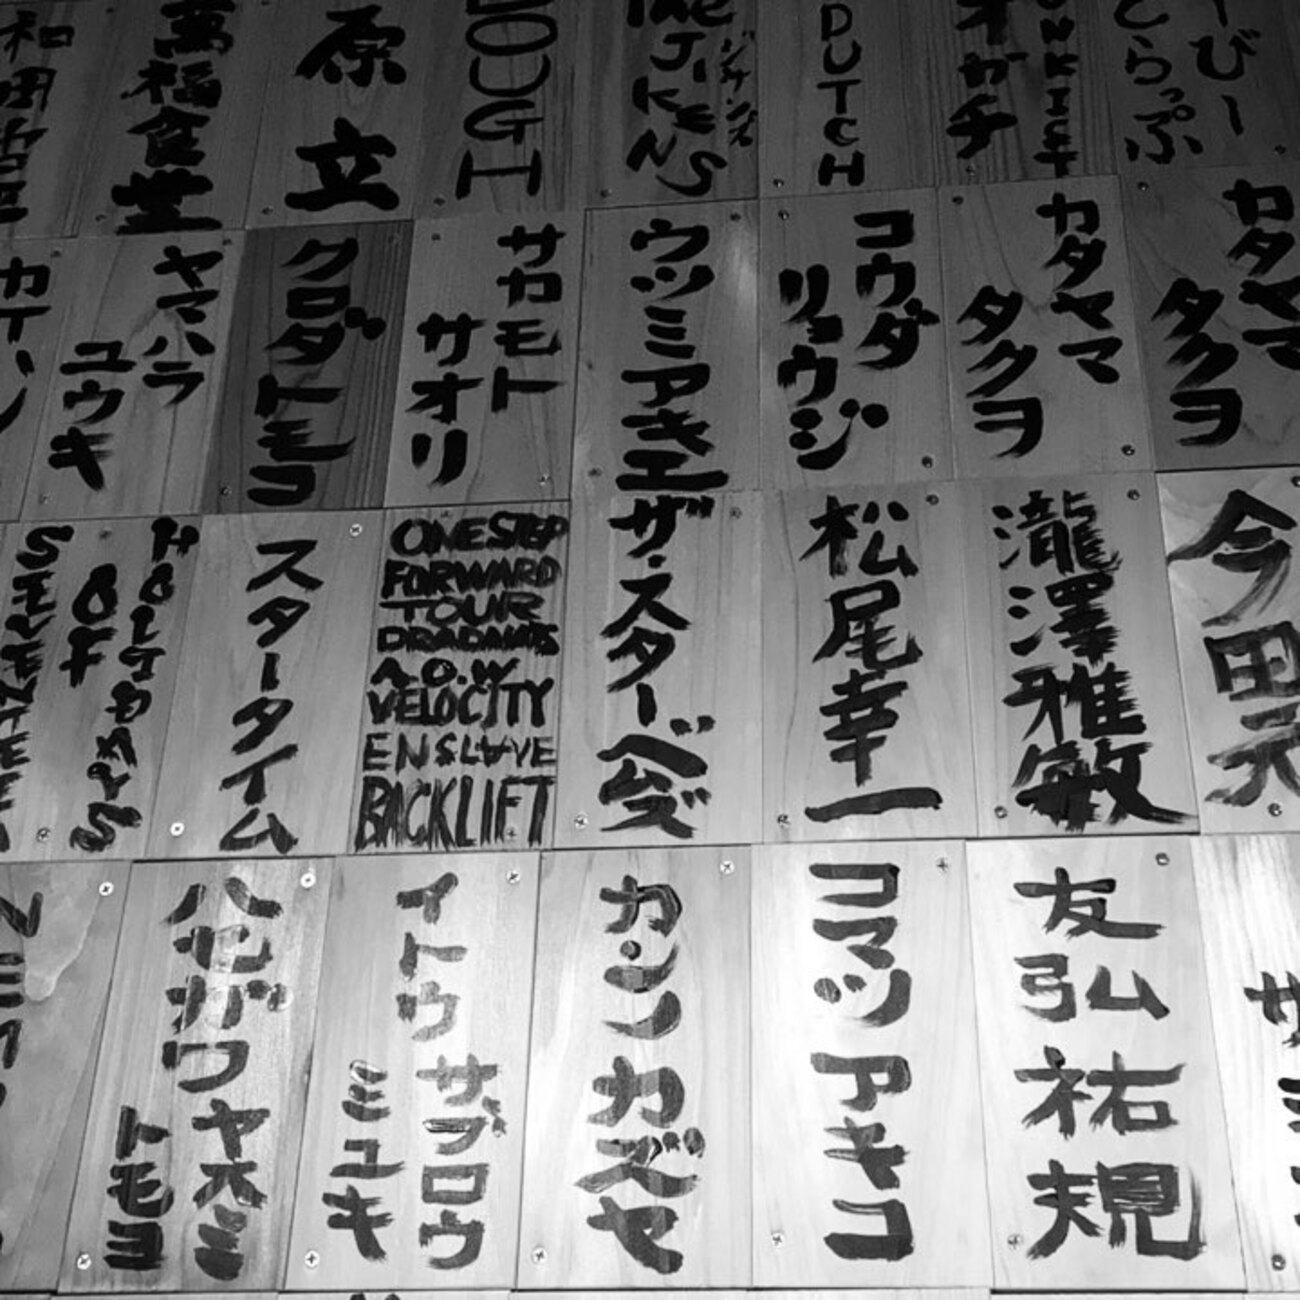 和田
萬福食堂
原立
DOUGH
THE JiKENS
ジケンズ
DUTCH
オガチ
らっぷ
びー
ヤマハラ
ユウキ
クロダトモコ
サカモト
サオリ
ウツミアキエ
コウダ
リョウジ
カタヤマ
タクヲ
カタヤマ
タクヲ
HOLIDAYS
OF
SEVENTEEN
スタータイム
ONE STEP
FORWARD
TOUR
DRADNATS
A.O.W
VELOCITY
ENSLAVE
BACKLIFT
ザ・スターベムズ
松尾幸一
瀧澤雅敏
今田
ハセガワヤスミ
トモヨ
イトウ
サブロウ
ミユキ
カンノカズヤ
コマツアキコ
友弘祐規